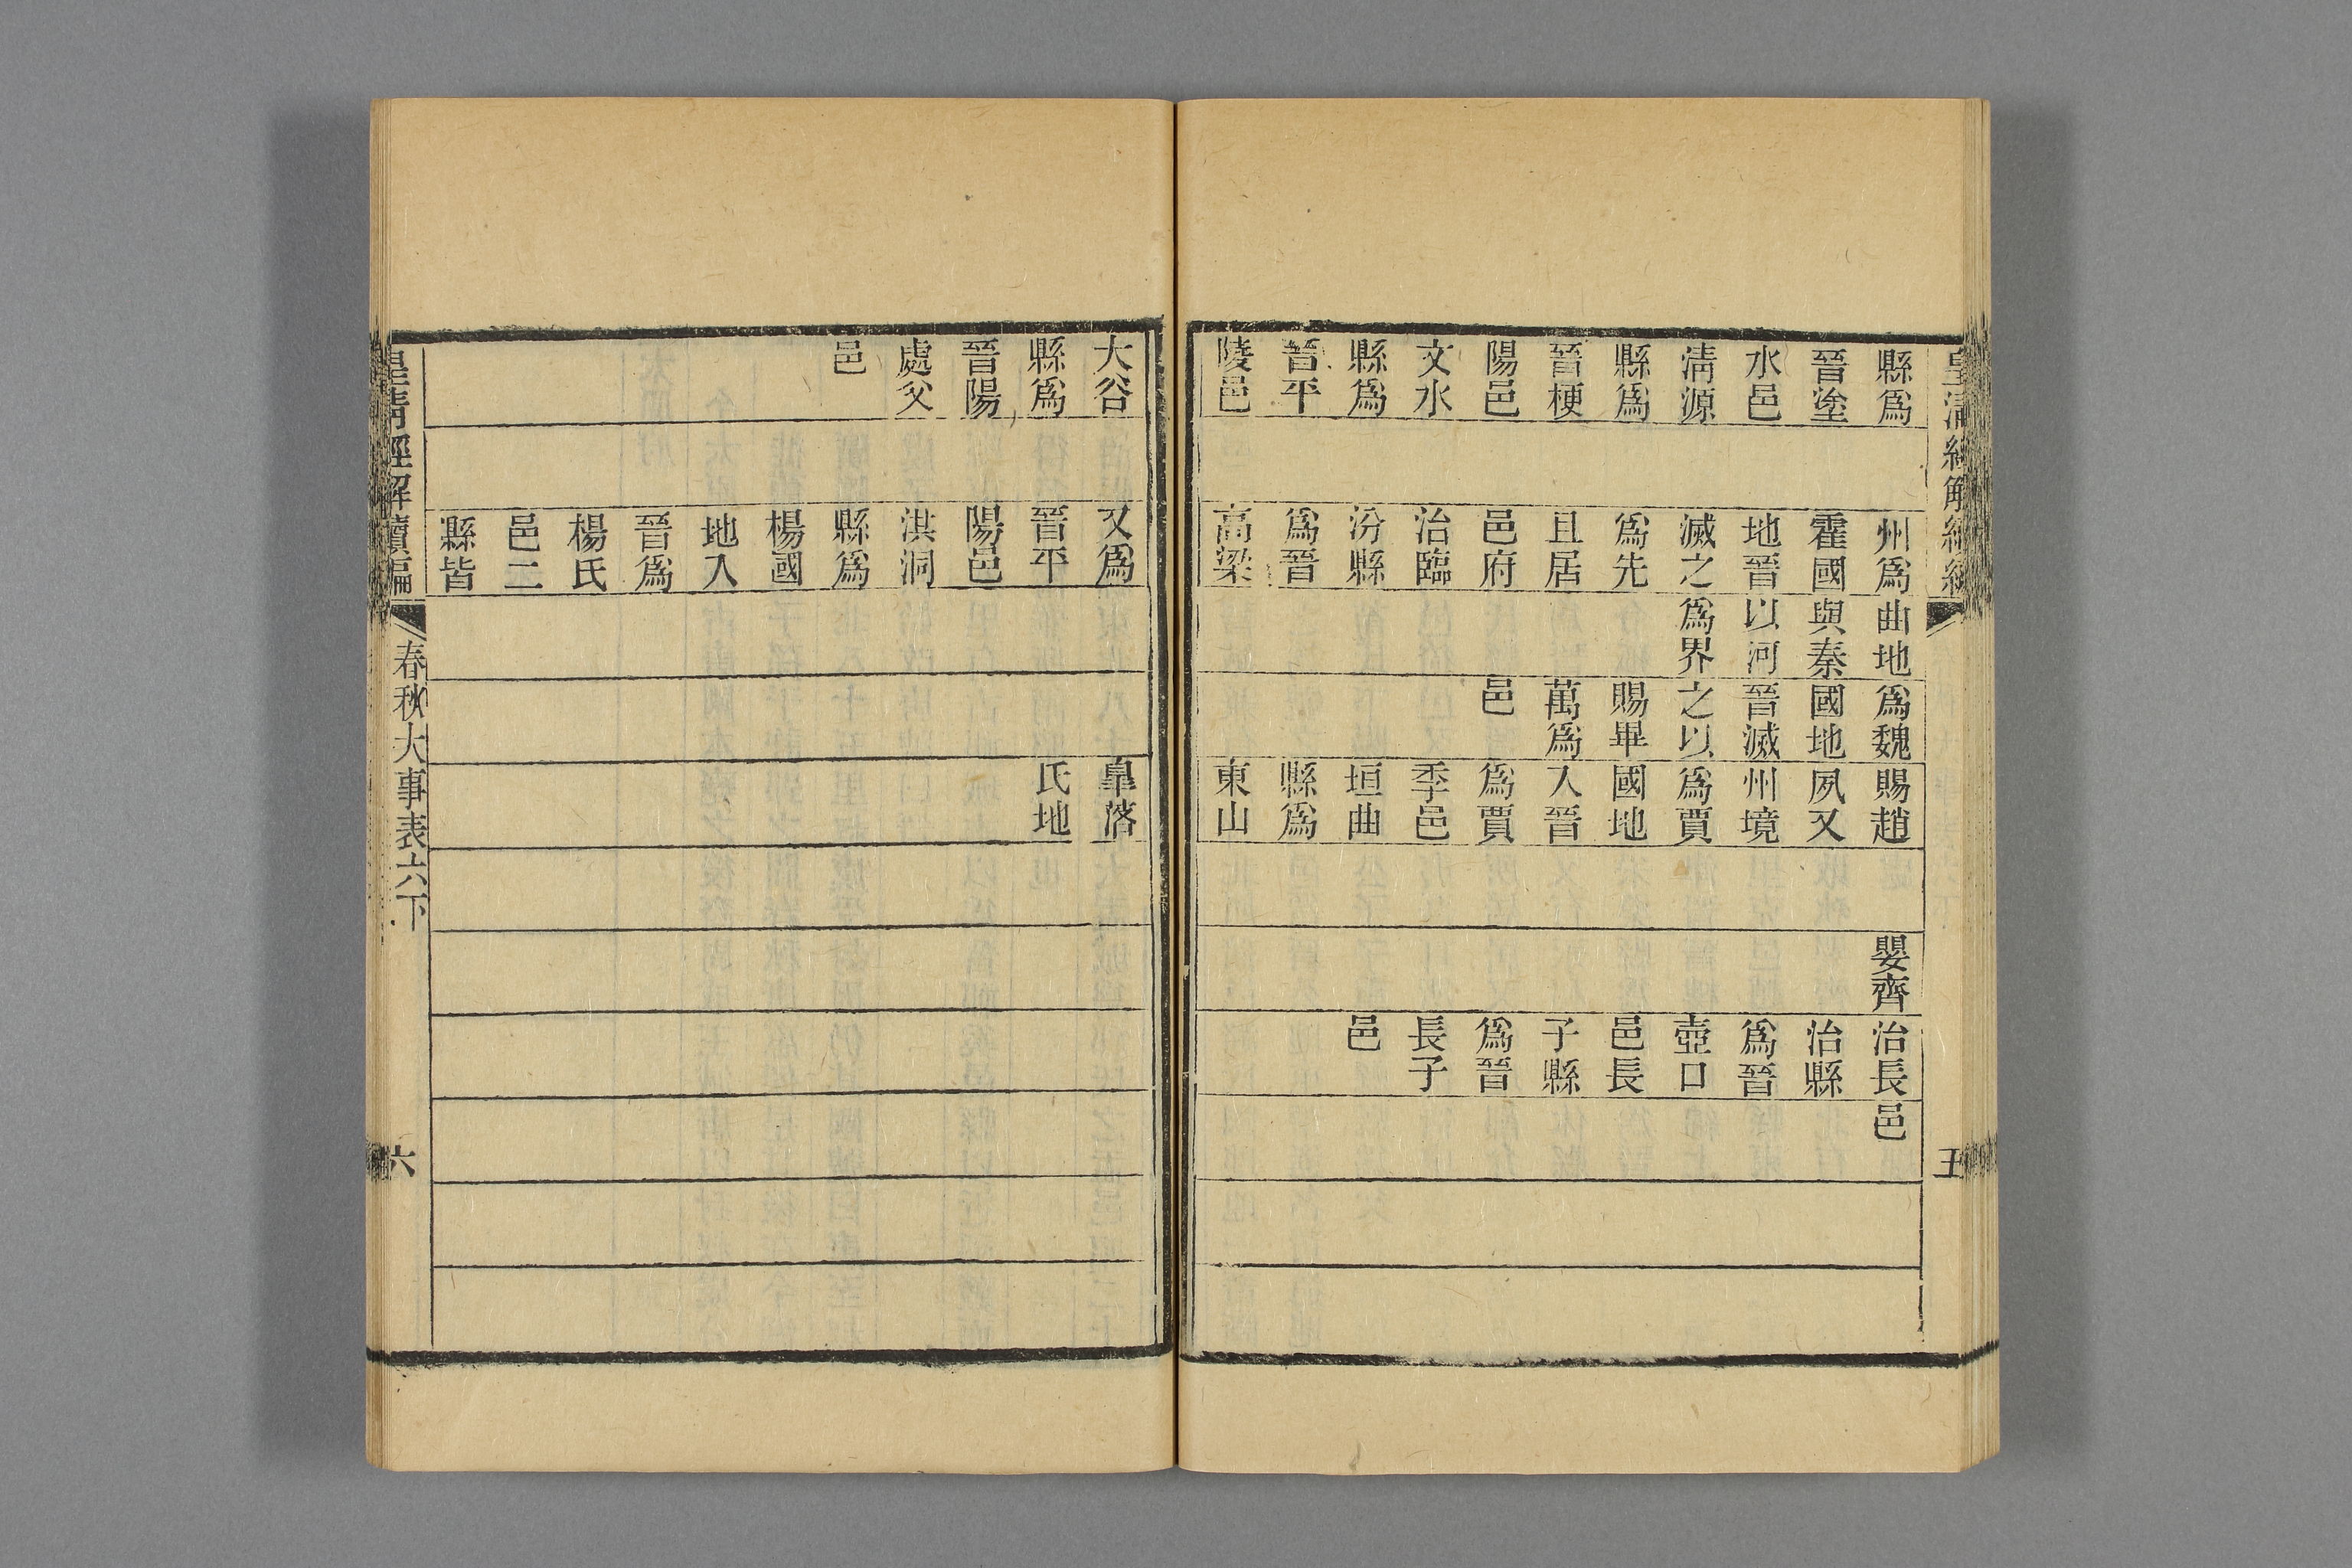 皇清經解續編
五
縣爲
晉塗
水邑
清源
縣爲
晉梗
陽邑
文水
縣爲
晉平
陵邑
州爲
霍國
地晉
滅之
爲先
且居
邑府
治臨
汾縣
爲晉
高梁
曲地
與秦
以河
爲界
爲魏
國地
晉滅
之以
賜畢
萬爲
邑
賜趙
夙又
州境
爲賈
國地
入晉
爲賈
季邑
垣曲
縣爲
東山
嬰齊
治長
治縣
爲晉
壺口
邑長
子縣
爲晉
長子
邑
邑
大谷
縣爲
晉陽
處父
邑
又爲
晉平
陽邑
洪洞
縣爲
楊國
地入
晉爲
楊氏
邑二
縣皆
皐落
氏地
皇清經解續編
春秋大事表六下
六